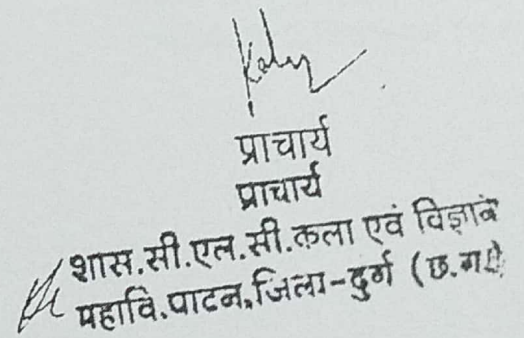 प्राचार्य
प्राचार्य
शास.सी.एल.सी.कला एवं विज्ञान
महावि.पाटन,जिला-दुर्ग (छ.ग.)